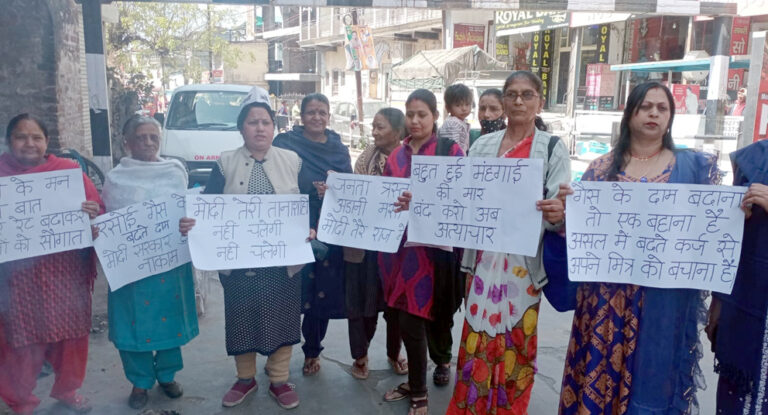 ROYAL
ROYAL BA
ROYAL
ON ARMY
के मन
बात
रेट बढ़ाकर
को सौगात
रसोई गैस के
बढ़ते दाम
मोदी सरकार
नाकाम
मोदी तेरी तानाशाही
नहीं चलेगी
नहीं चलेगी
जनता त्रस्त
अडानी मस्त
मोदी तेरे राज में
बहुत हुई मंहगाई
की मार
बंद करो अब
अत्याचार
गैस के दाम बढ़ाना
तो एक बहाना है
असल में बढ़ते कर्ज से
अपने मित्र को बचाना है